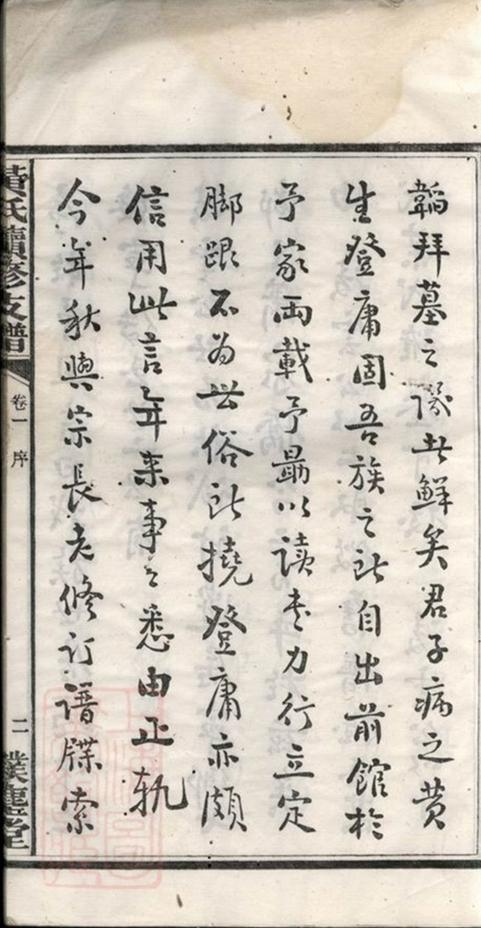 韜拜墓之隊者鮮矣君子病之黄
生登庸固吾族之所自出前館於
予家両載予勗以讀書力行立定
脚跟不為世俗所撓登庸亦頗
信用此言年来事々悉由正軌
今年秋與宗長老修訂譜牒索
黄氏續修支譜
卷一
序
二